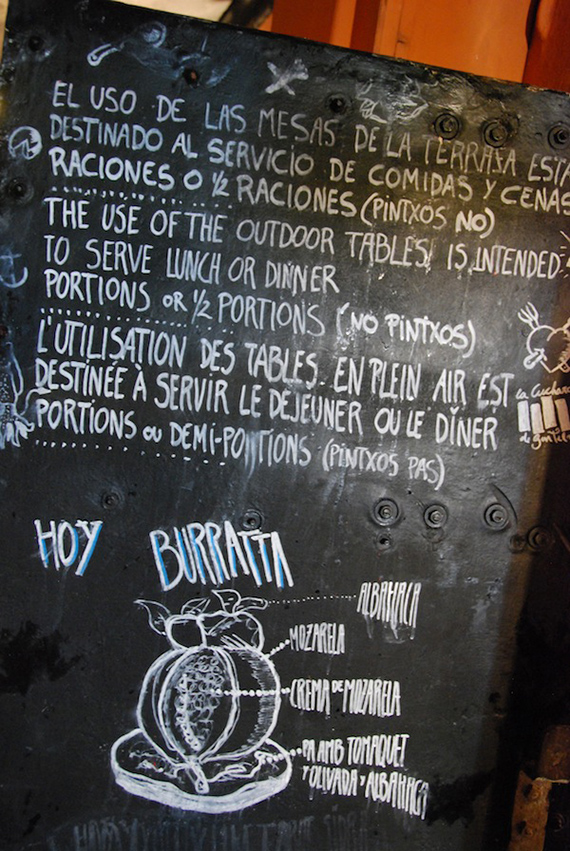 EL USO DE LAS MESAS DE LA TERRAZA ESTA
DESTINADO AL SERVICIO DE COMIDAS Y CENAS
RACIONES O ½ RACIONES (PINTXOS NO)
THE USE OF THE OUTDOOR TABLES IS INTENDED
TO SERVE LUNCH OR DINNER
PORTIONS OR ½ PORTIONS (NO PINTXOS)
L'UTILISATION DES TABLES EN PLEIN AIR EST
DESTINÉE À SERVIR LE DÉJEUNER OU LE DÎNER
PORTIONS OU DEMI-PORTIONS (PINTXOS PAS)
La Cuchara
de San Telmo
HOY BURRATTA
ALBAHACA
MOZARELA
CREMA DE MOZARELA
PA AMB TOMAQUET
Y OLIVADA Y ALBAHACA